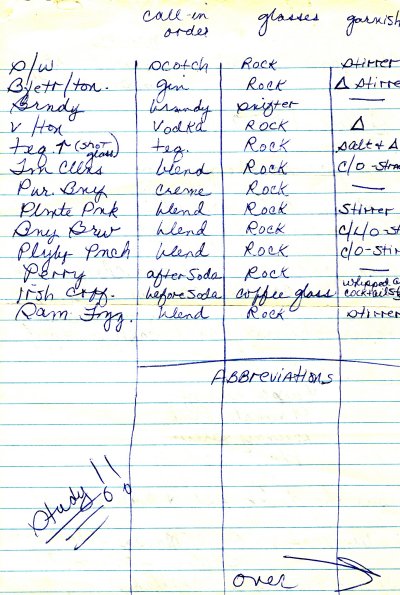 call-in glasses garnish
order
S/W Scotch Rock Stirrer
Bfetr/ton. gin Rock Δ Stirre
Brndy brandy Snifter —
V/ton Vodka Rock Δ
teq ↑ (shot glass) teq. Rock Salt & Δ
Tm Cllns blend Rock c/o-Stra
Pur. Bny creme Rock —
Plnts Pnk blend Rock Stirrer
Bny Brw blend Rock c/L/o-St
Plyby Pnch blend Rock c/o-Stir
Perry after Soda Rock —
Irsh Coff. before Soda coffee glass whipped cocktail
Ram Fzz. blend Rock Stirrer
Abbreviations
Study!!
over